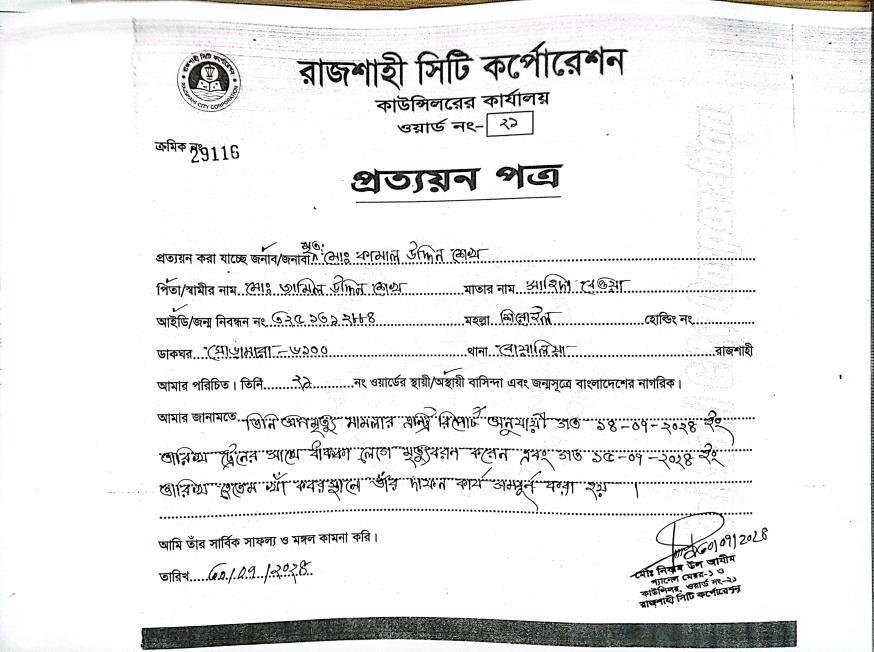 রাজশাহী সিটি কর্পোরেশন
কাউন্সিলরের কার্যালয়
ওয়ার্ড নং- ২১
RAJSHAHI CITY CORPORATION
ক্রমিক নং 29116
প্রত্যয়ন পত্র
প্রত্যয়ন করা যাচ্ছে জনাব/জনাবা মৃত: মোঃ কামাল উদ্দিন শেখ
পিতা/স্বামীর নাম মোঃ জামিল উদ্দিন শেখ মাতার নাম বেওয়া
আইডি/জন্ম নিবন্ধন নং মহল্লা শিরোইল হোল্ডিং নং
ডাকঘর ঘোড়ামারা-৬১০০ থানা বোয়ালিয়া রাজশাহী
আমার পরিচিত। তিনি ২১ নং ওয়ার্ডের স্থায়ী/অস্থায়ী বাসিন্দা এবং জন্মসূত্রে বাংলাদেশের নাগরিক।
আমার জানামতে তিনি অপমৃত্যু মামলার রিপোর্ট অনুযায়ী গত ১৪-০৭-২০২৪ ইং
তারিখ ট্রেনের সাথে ধাক্কা লেগে মৃত্যুবরন করেন এবং গত ১৫-০৭-২০২৪ ইং
তারিখ হেতেম খাঁ কবরস্থানে তাঁর দাফন কার্য সম্পূর্ন করা হয়।
আমি তাঁর সার্বিক সাফল্য ও মঙ্গল কামনা করি।
তারিখ ৩০/০৭/২০২৪
৩০/০৭/২০২৪
মোঃ নিযাম উল আযীম
প্যানেল মেয়র-১ ও
কাউন্সিলর, ওয়ার্ড নং-২১
রাজশাহী সিটি কর্পোরেশন